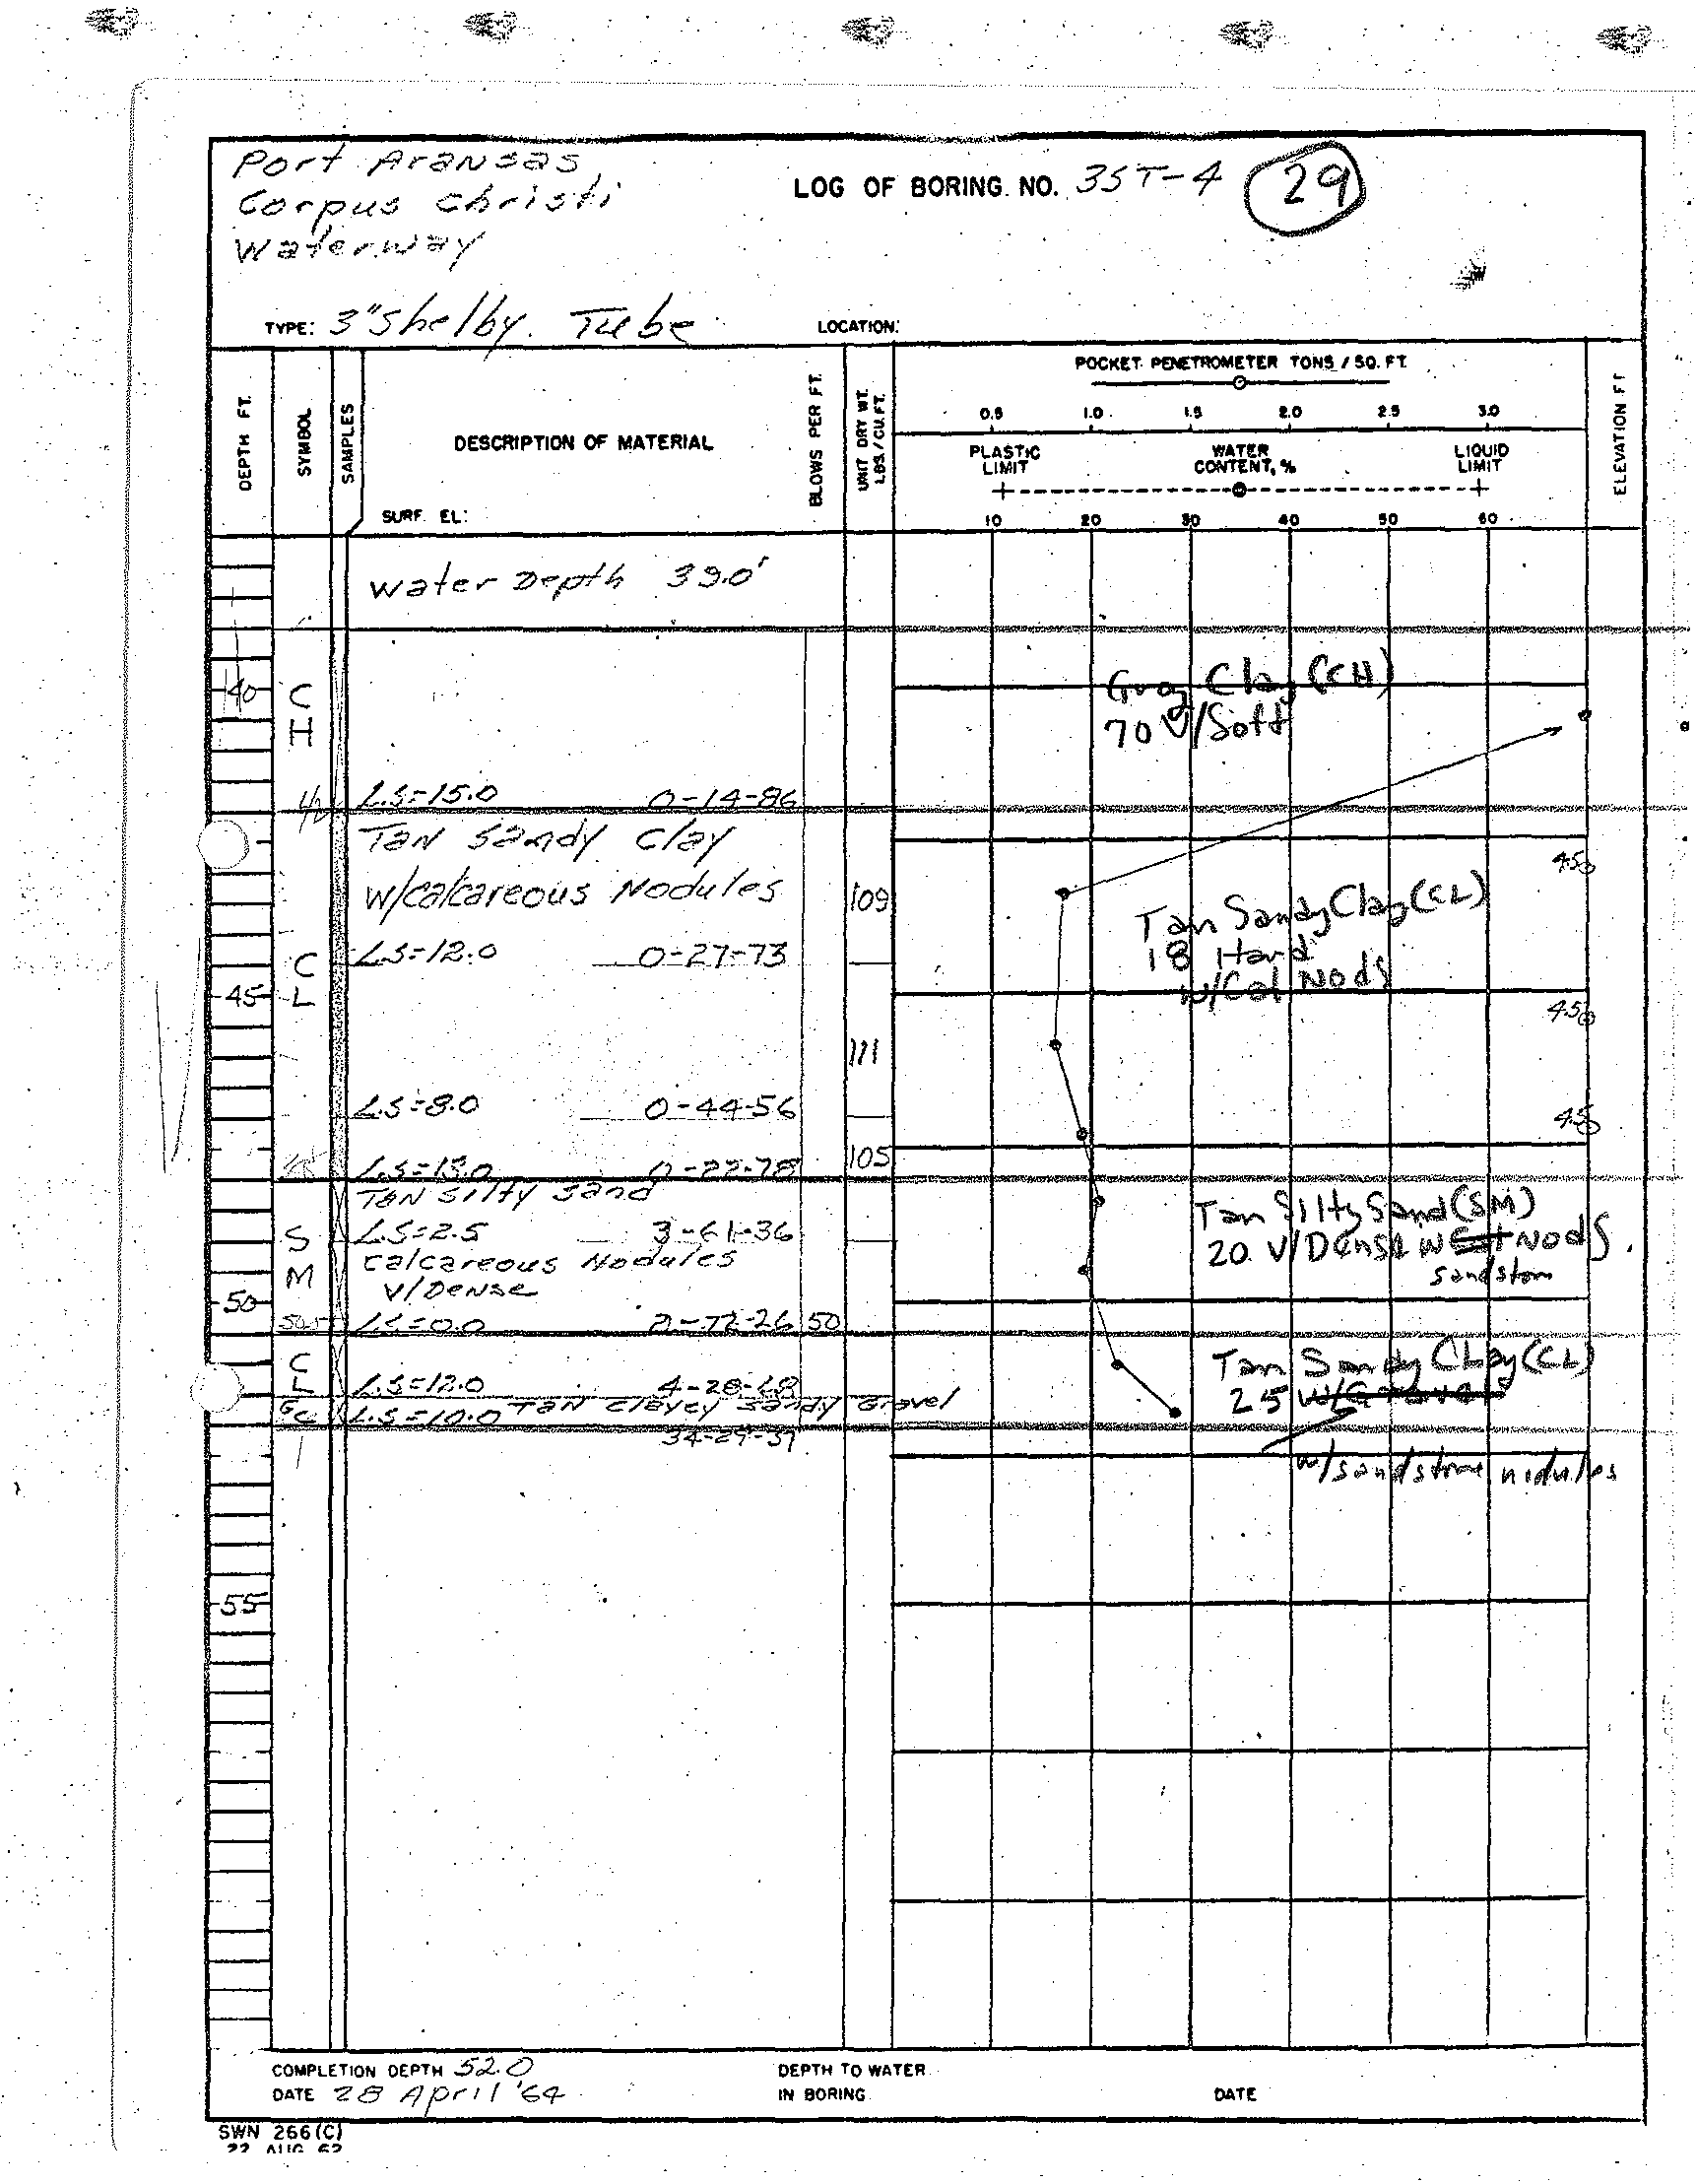 Port Aransas
Corpus Christi
Waterway
LOG OF BORING NO. 3ST-4
29
TYPE: 3" Shelby Tube
LOCATION:
DEPTH FT.
SYMBOL
SAMPLES
DESCRIPTION OF MATERIAL
SURF. EL:
BLOWS PER FT.
UNIT DRY WT. LBS./CU.FT.
POCKET PENETROMETER TONS / SQ. FT.
0.5 1.0 1.5 2.0 2.5 3.0
PLASTIC LIMIT
WATER CONTENT, %
LIQUID LIMIT
10 20 30 40 50 60
ELEVATION FT
Water Depth 39.0'
40
CH
Gray Clay (CH)
70 V/Soft
L.S=15.0 0-14-86
Tan Sandy Clay
w/calcareous Nodules
109
4.5
Tan Sandy Clay (CL)
18 Hard
w/Cal Nods
L.S=12.0 0-27-73
CL
45
4.5
111
L.S=8.0 0-44-56
4.5
L.S=13.0 0-22-78
105
Tan Silty Sand
L.S=2.5 3-61-36
calcareous Nodules
V/Dense
SM
Tan Silty Sand (SM)
20 V/Dense w Nods.
sandston
50
L.S=0.0 2-72-26 50
CL
L.S=12.0 4-28-68
Tan Sandy CLay (CL)
25 w/Gravel
GC
L.S=10.0 Tan Clayey Sandy Gravel
34-29-37
w/sandstone nidules
55
COMPLETION DEPTH 52.0
DATE 28 April '64
DEPTH TO WATER
IN BORING
DATE
SWN 266 (C)
22 AUG 62